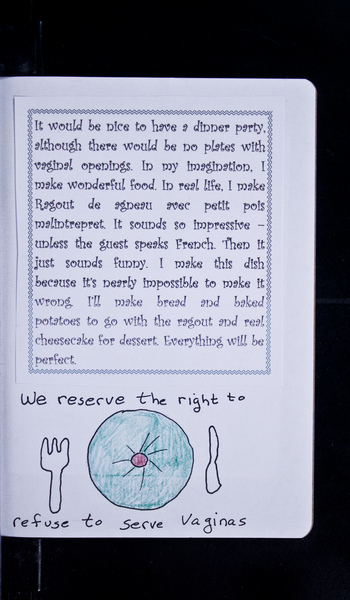 It would be nice to have a dinner party,
although there would be no plates with
vaginal openings. In my imagination, I
make wonderful food. In real life, I make
Ragout de agneau avec petit pois
malintrepret. It sounds so impressive –
unless the guest speaks French. Then it
just sounds funny. I make this dish
because it's nearly impossible to make it
wrong. I'll make bread and baked
potatoes to go with the ragout and real
cheesecake for dessert. Everything will be
perfect.
We reserve the right to
refuse to serve Vaginas